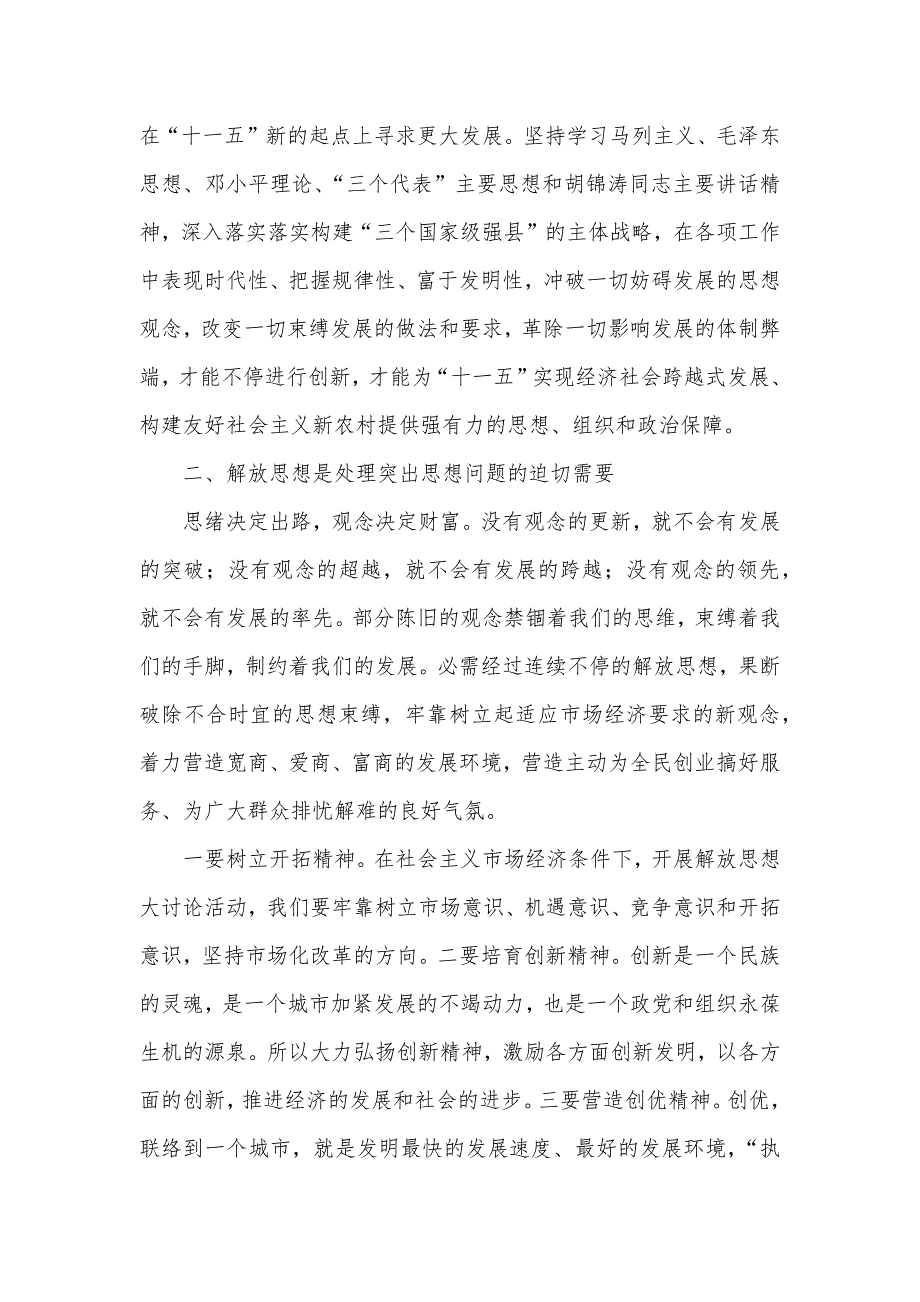 在“十一五”新的起点上寻求更大发展。坚持学习马列主义、毛泽东
思想、邓小平理论、“三个代表”主要思想和胡锦涛同志主要讲话精
神，深入落实落实构建“三个国家级强县”的主体战略，在各项工作
中表现时代性、把握规律性、富于发明性，冲破一切妨碍发展的思想
观念，改变一切束缚发展的做法和要求，革除一切影响发展的体制弊
端，才能不停进行创新，才能为“十一五”实现经济社会跨越式发展、
构建友好社会主义新农村提供强有力的思想、组织和政治保障。
二、解放思想是处理突出思想问题的迫切需要
思绪决定出路，观念决定财富。没有观念的更新，就不会有发展
的突破；没有观念的超越，就不会有发展的跨越；没有观念的领先，
就不会有发展的率先。部分陈旧的观念禁锢着我们的思维，束缚着我
们的手脚，制约着我们的发展。必需经过连续不停的解放思想，果断
破除不合时宜的思想束缚，牢靠树立起适应市场经济要求的新观念，
着力营造宽商、爱商、富商的发展环境，营造主动为全民创业搞好服
务、为广大群众排忧解难的良好气氛。
一要树立开拓精神。在社会主义市场经济条件下，开展解放思想
大讨论活动，我们要牢靠树立市场意识、机遇意识、竞争意识和开拓
意识，坚持市场化改革的方向。二要培育创新精神。创新是一个民族
的灵魂，是一个城市加紧发展的不竭动力，也是一个政党和组织永葆
生机的源泉。所以大力弘扬创新精神，激励各方面创新发明，以各方
面的创新，推进经济的发展和社会的进步。三要营造创优精神。创优，
联络到一个城市，就是发明最快的发展速度、最好的发展环境，“执